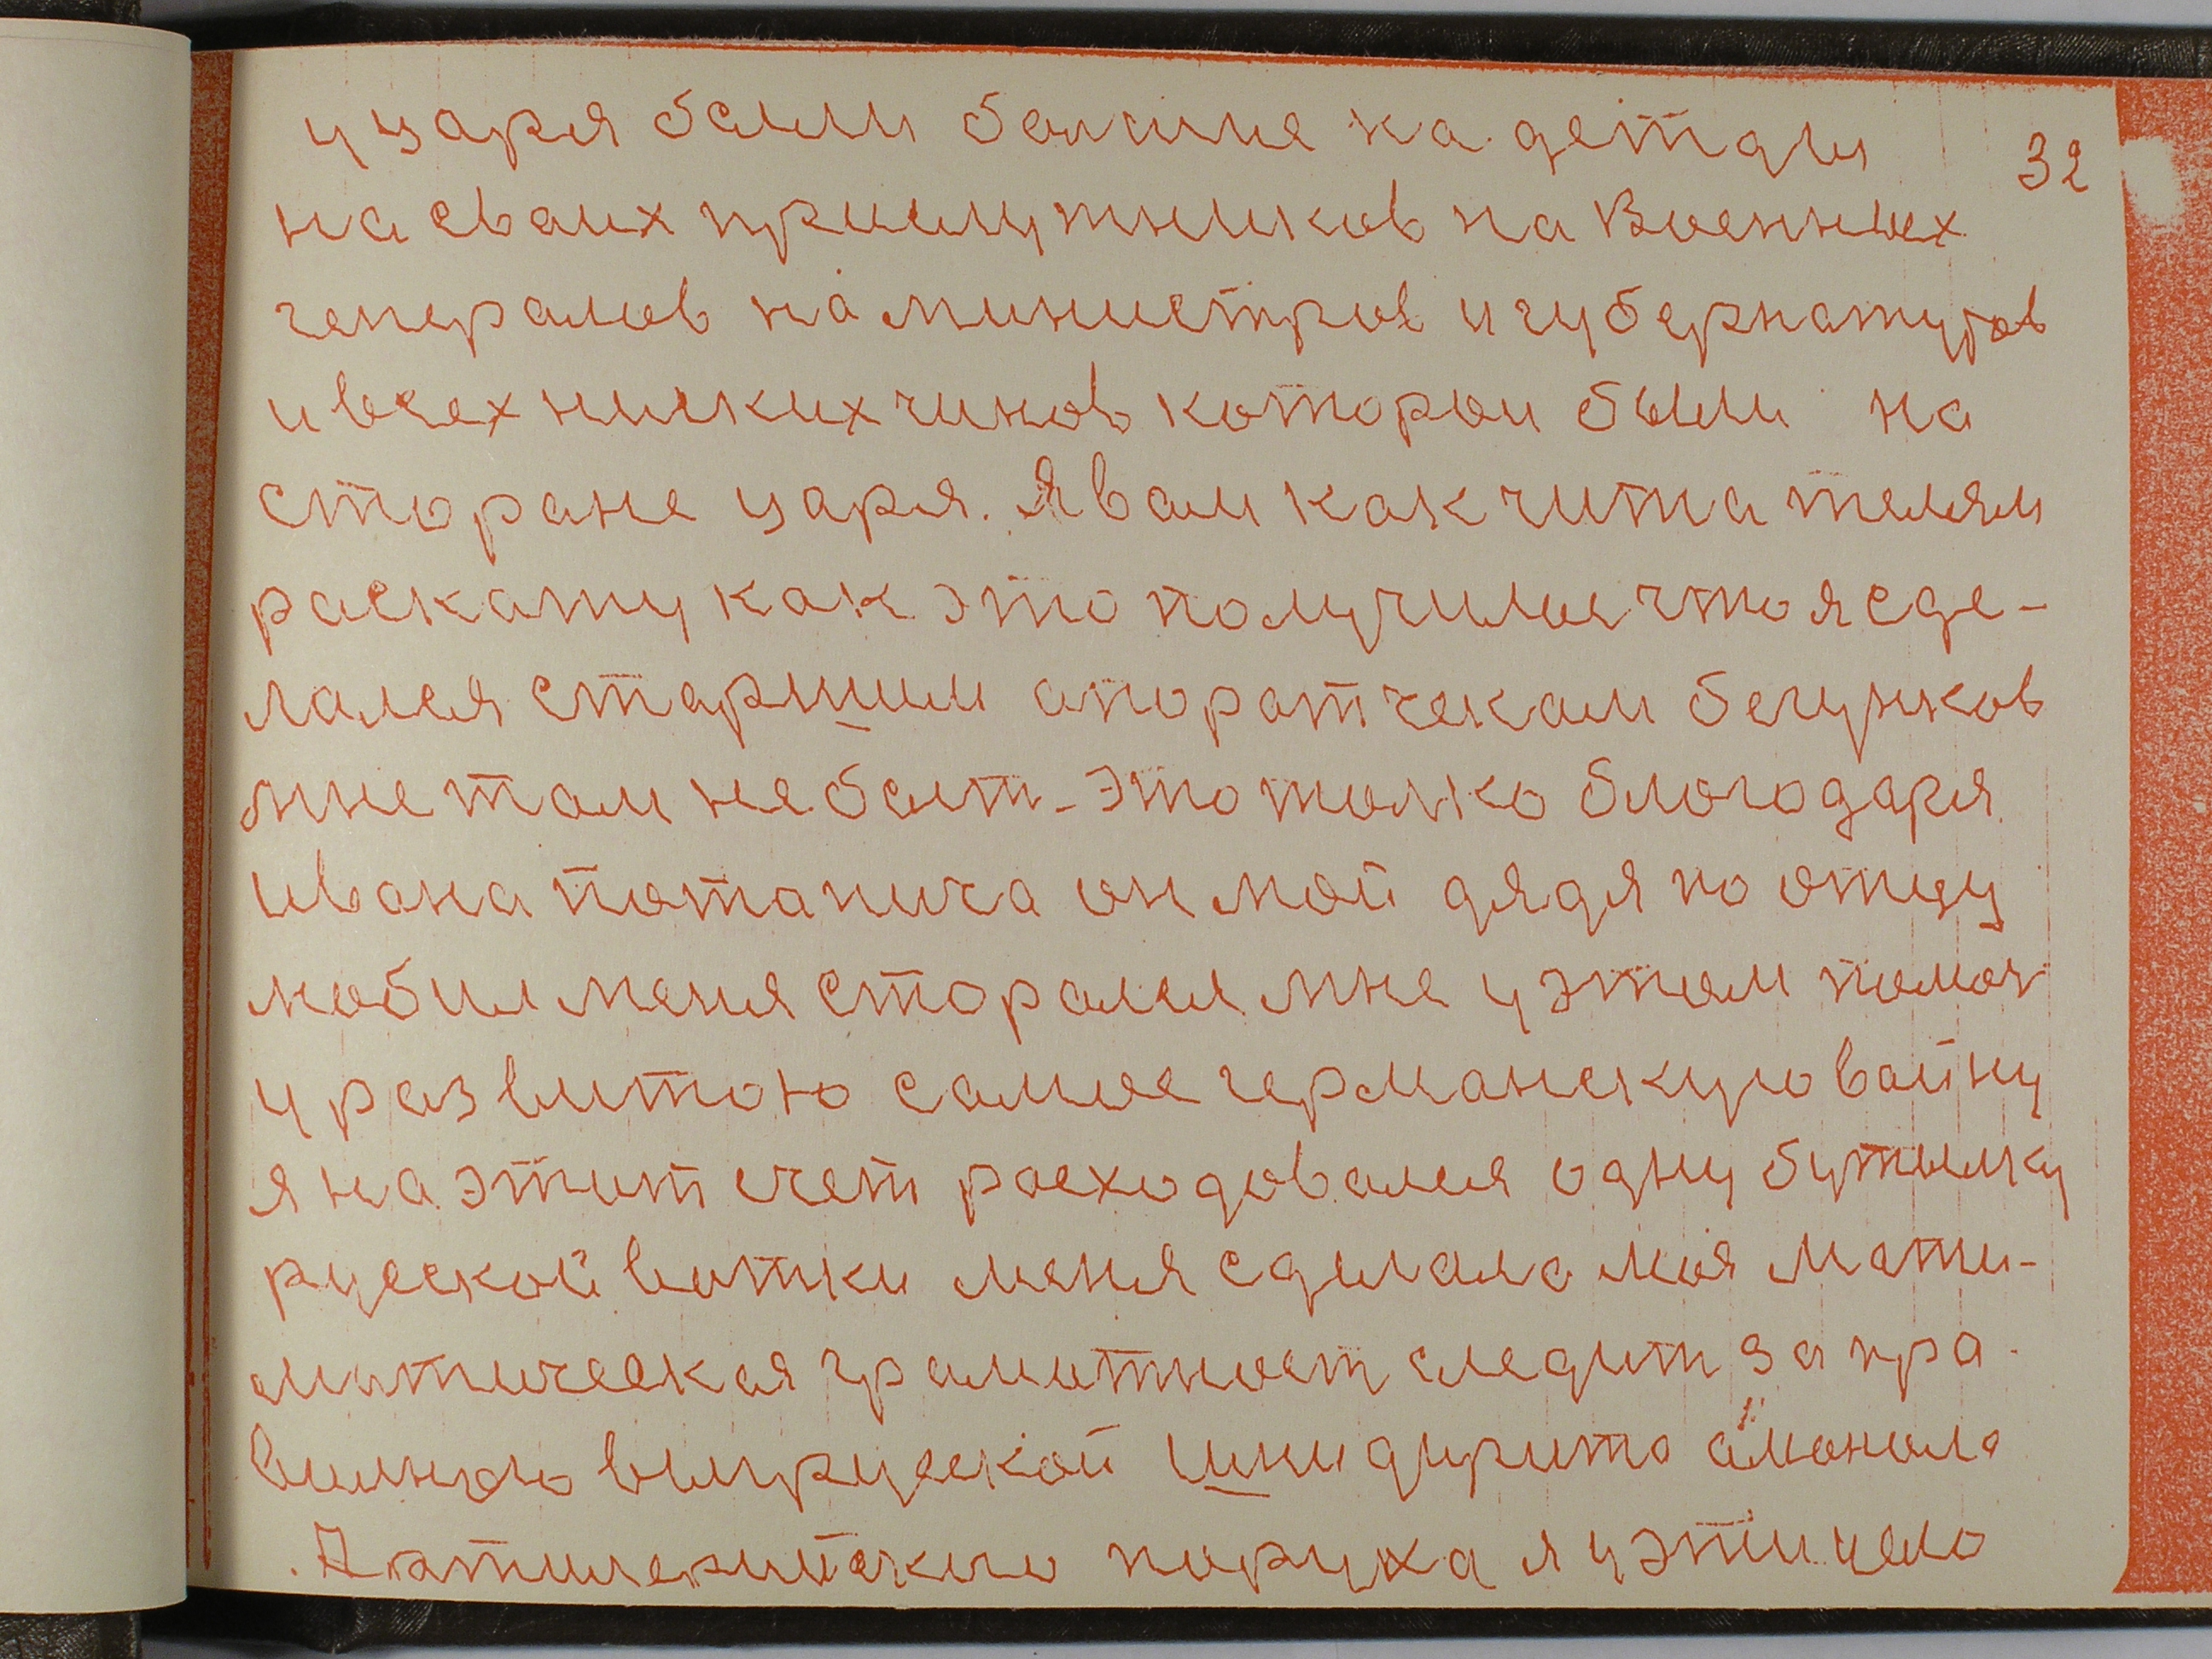 у царя были болшие надетди
32
на своих прислутников на Военных
генералов на министров и губернатуров
и всех нитких чинов которои были на
стороне царя. Я вам как читателям
раскату как это получилос что я сде-
лался старшим апоратчекам бегунков
мне там не быт - это толко благодаря
ивана потапича он мой дядя по отцу
любил меня сторался мне у этом помоч
у развитою самое германскую войну
я на этит счет расходовался одну бутылку
русской вотки меня сделала моя мати-
матическая граматност следит за пра-
вилною вырруской амонала
Артилерийского пороха я у эти число